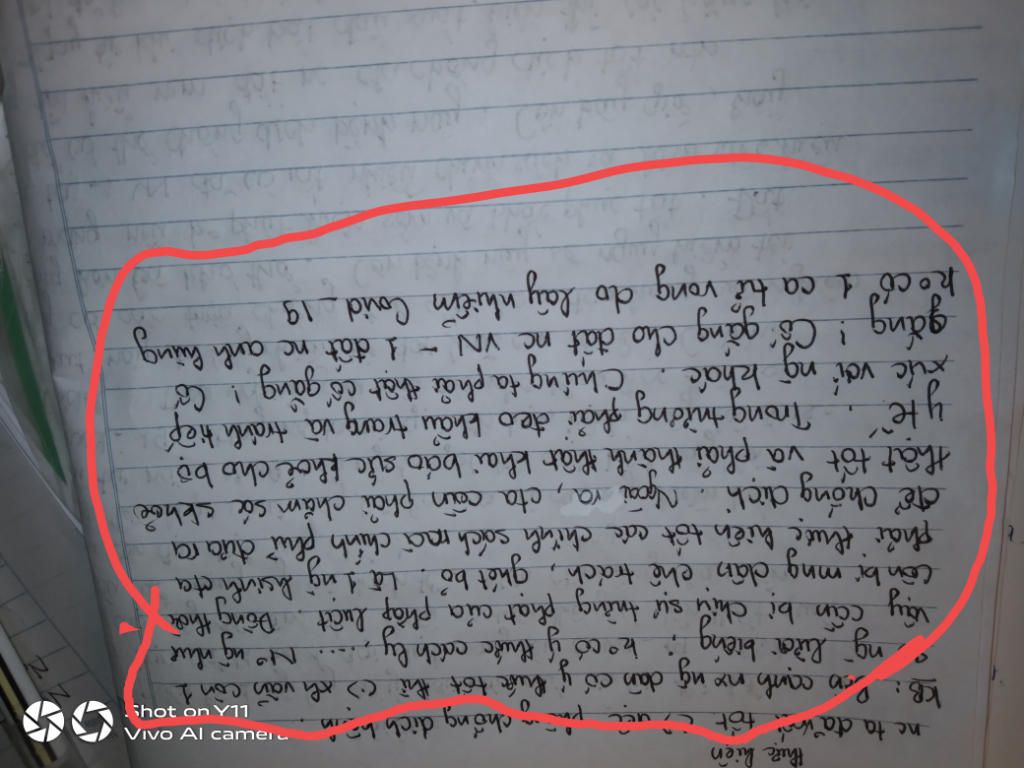 thực hiện
nc ta đã tốt () việc phòng chống dịch
KB: Bên cạnh nx ng dân có ý thức tốt thì () xh vẫn còn 1
số ng lười biếng, ko có ý thức cách ly, .... Nx ng như
vậy cần bị chịu sự trừng phạt của pháp luật. Đồng thời
còn bị mng dân chê trách, ghét bỏ. Là 1 ng hsinh cta
phải thực hiện tốt các chính sách mà chính phủ đưa ra
để chống dịch. Ngoài ra, cta cần phải chăm sóc skhoẻ
thật tốt và phải thành thật khai báo sức khoẻ cho bộ
y tế. Trong trường phải đeo khẩu trang và tránh tiếp
xúc với ng khác. Chúng ta phải thật cố gắng! Cố
gắng! Cố gắng cho đất nc VN - 1 đất nc anh hùng
ko có 1 ca tử vong do lây nhiễm Covid_19
Shot on Y11
Vivo AI camera